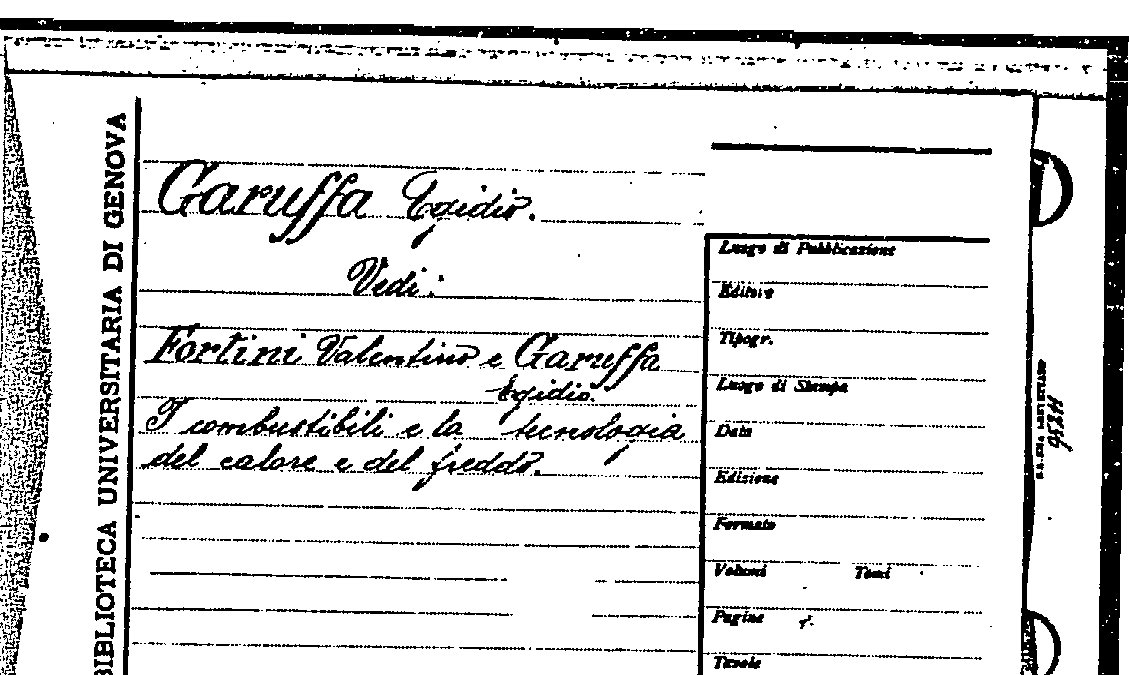 BIBLIOTECA UNIVERSITARIA DI GENOVA
Garuffa Egidio.
Vedi:
Fortini Valentino e Garuffa
Egidio.
I combustibili e la tecnologia
del calore e del freddo.
Luogo di Pubblicazione
Editore
Tipogr.
Luogo di Stampa
Data
Edizione
Formato
Volumi Tomi
Pagine
Tavole